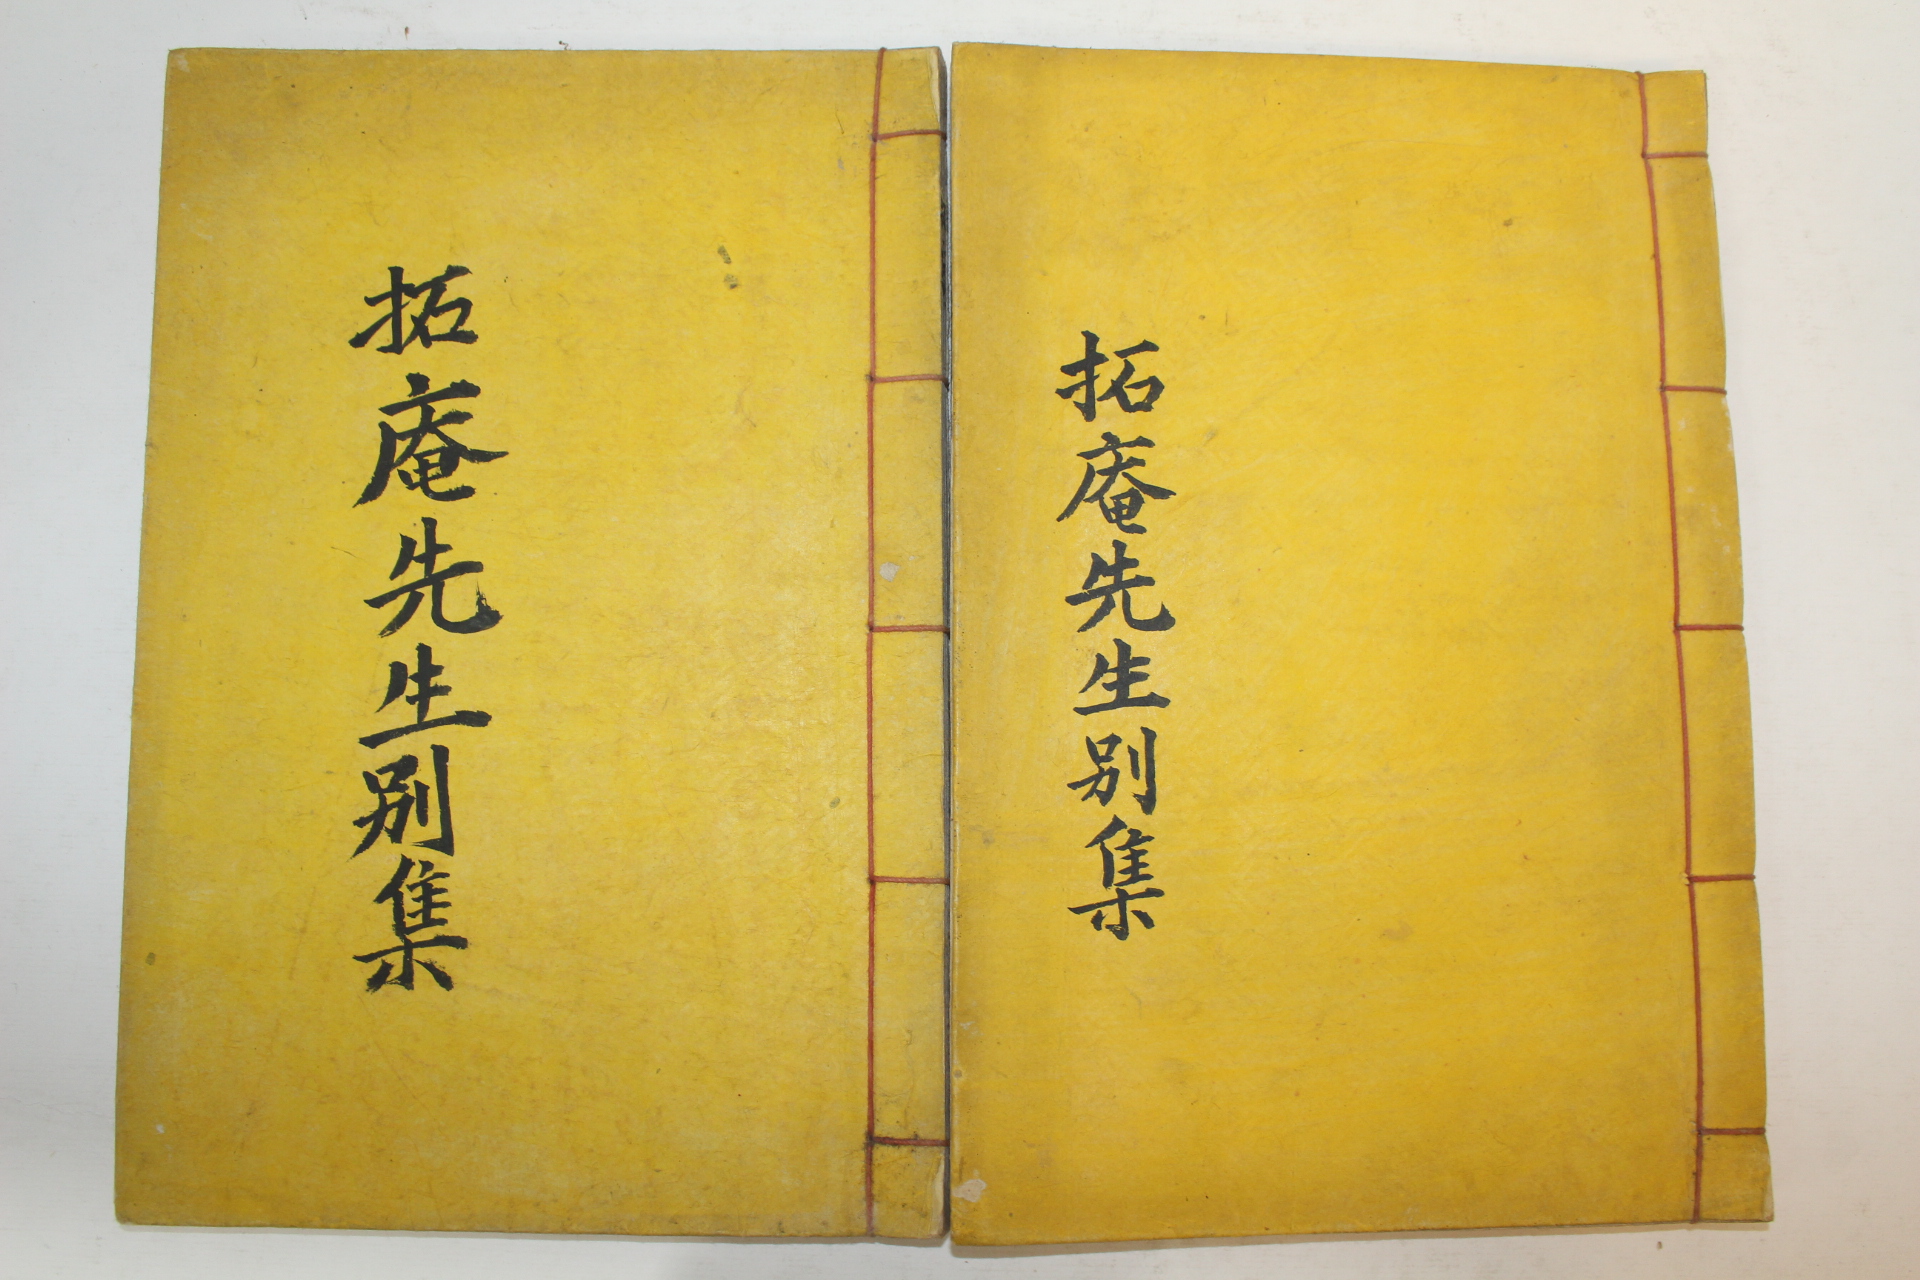 拓庵先生別集
拓庵先生別集